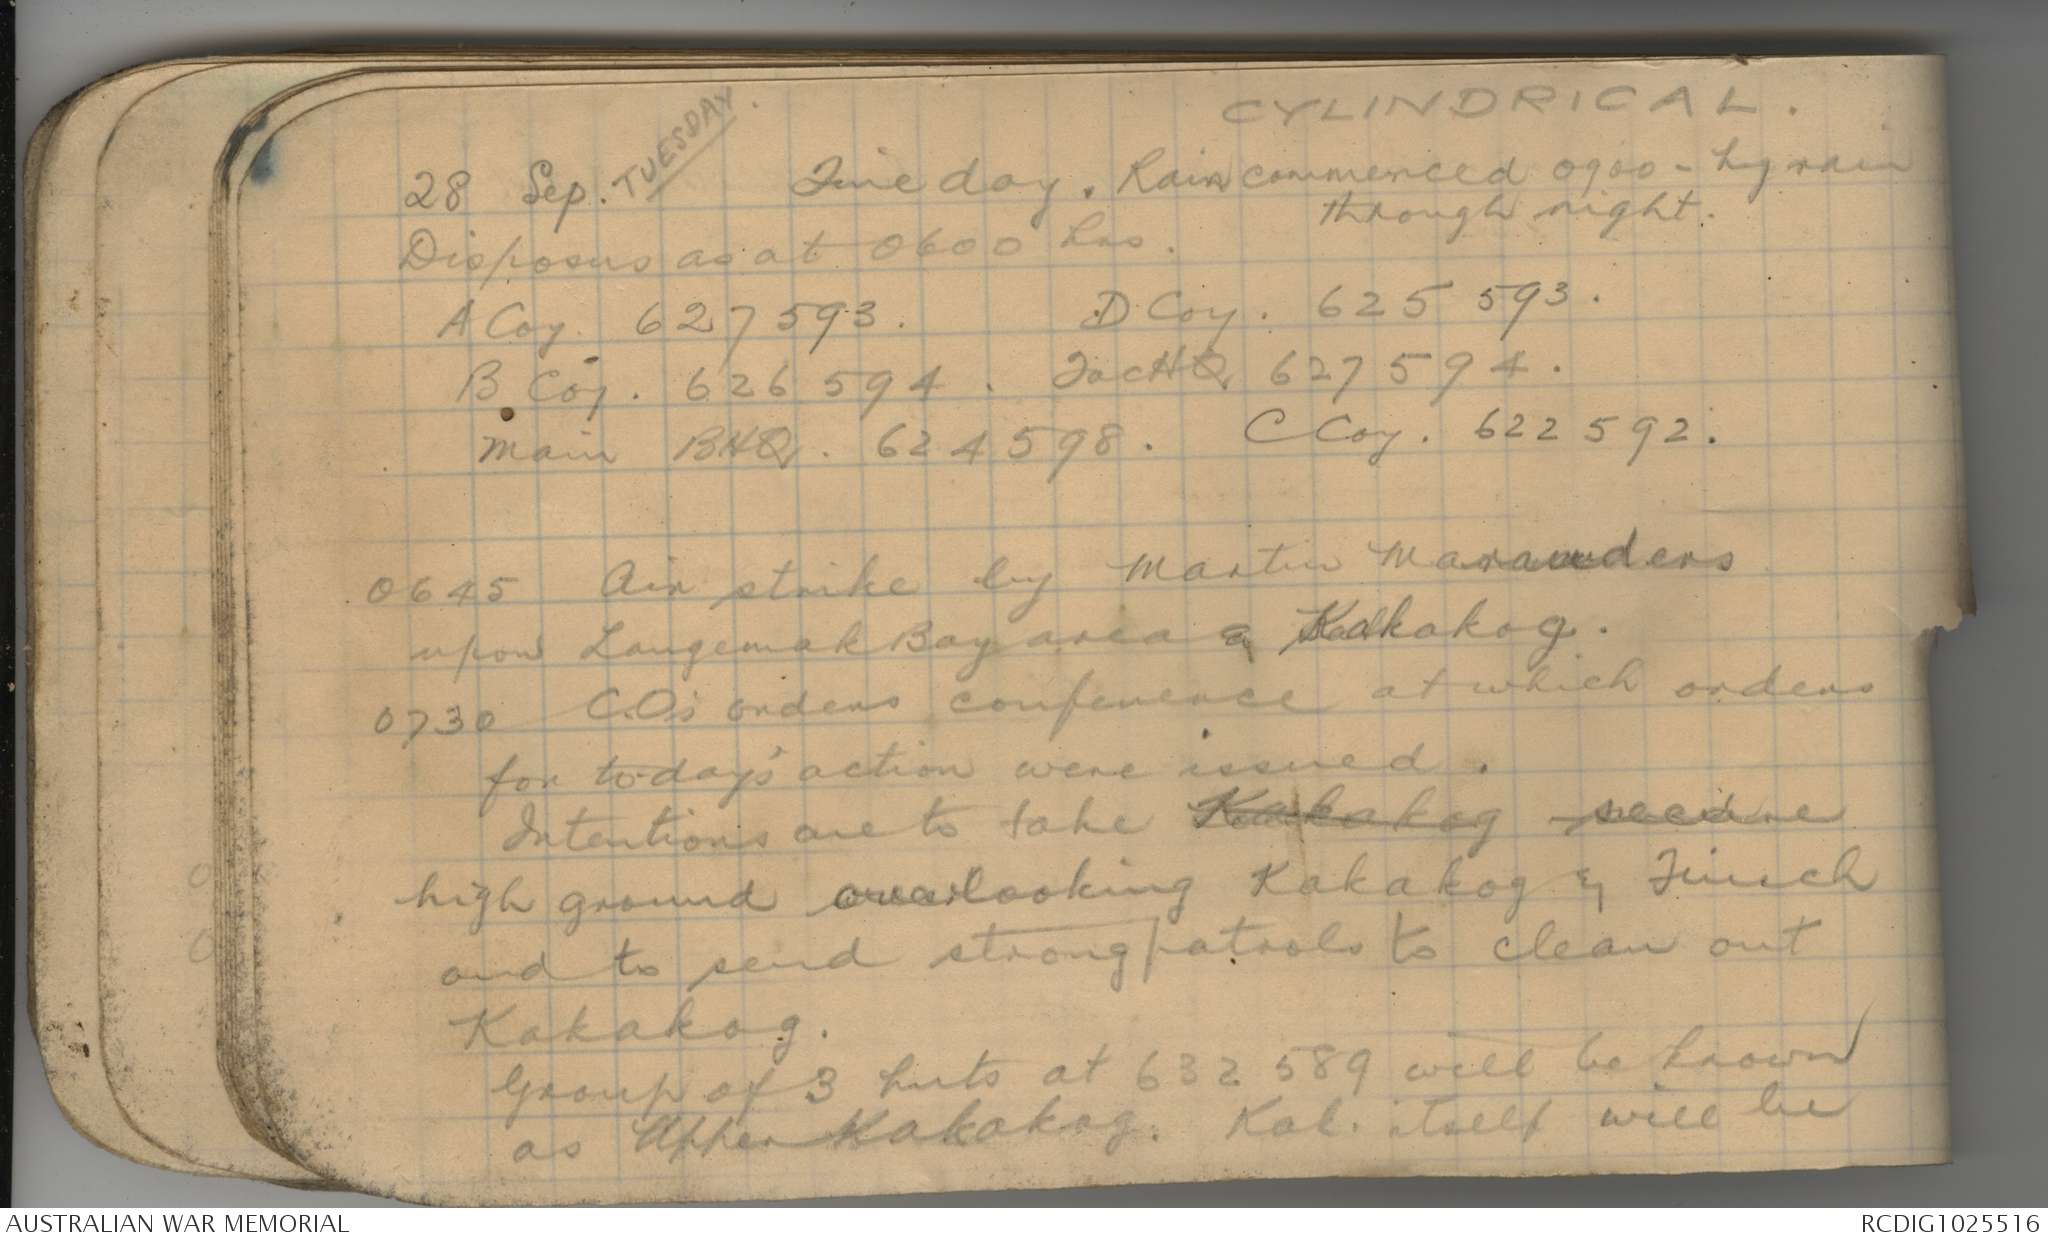 CYLINDRICAL.
28 Sep. TUESDAY. Fine day. Rain commenced 0900 - hy rain
through night.
Disposns as at 0600 hrs.
A Coy. 627593. D Coy. 625 593.
B Coy. 626594. Tac HQ 627594.
Main BHQ. 624598. C Coy. 622592.
0645 Air strike by Martin Marauders
upon Langemak Bay area & Kakakog.
0730 C.O's orders conference at which orders
for today's action were issued.
Intentions are to take Kakakog secure
high ground overlooking Kakakog & Finsch
and to send strong patrols to clean out
Kakakog.
Group of 3 huts at 632589 will be known
as Upper Kakakog. Kak. itself will be
AUSTRALIAN WAR MEMORIAL
RCDIG1025516